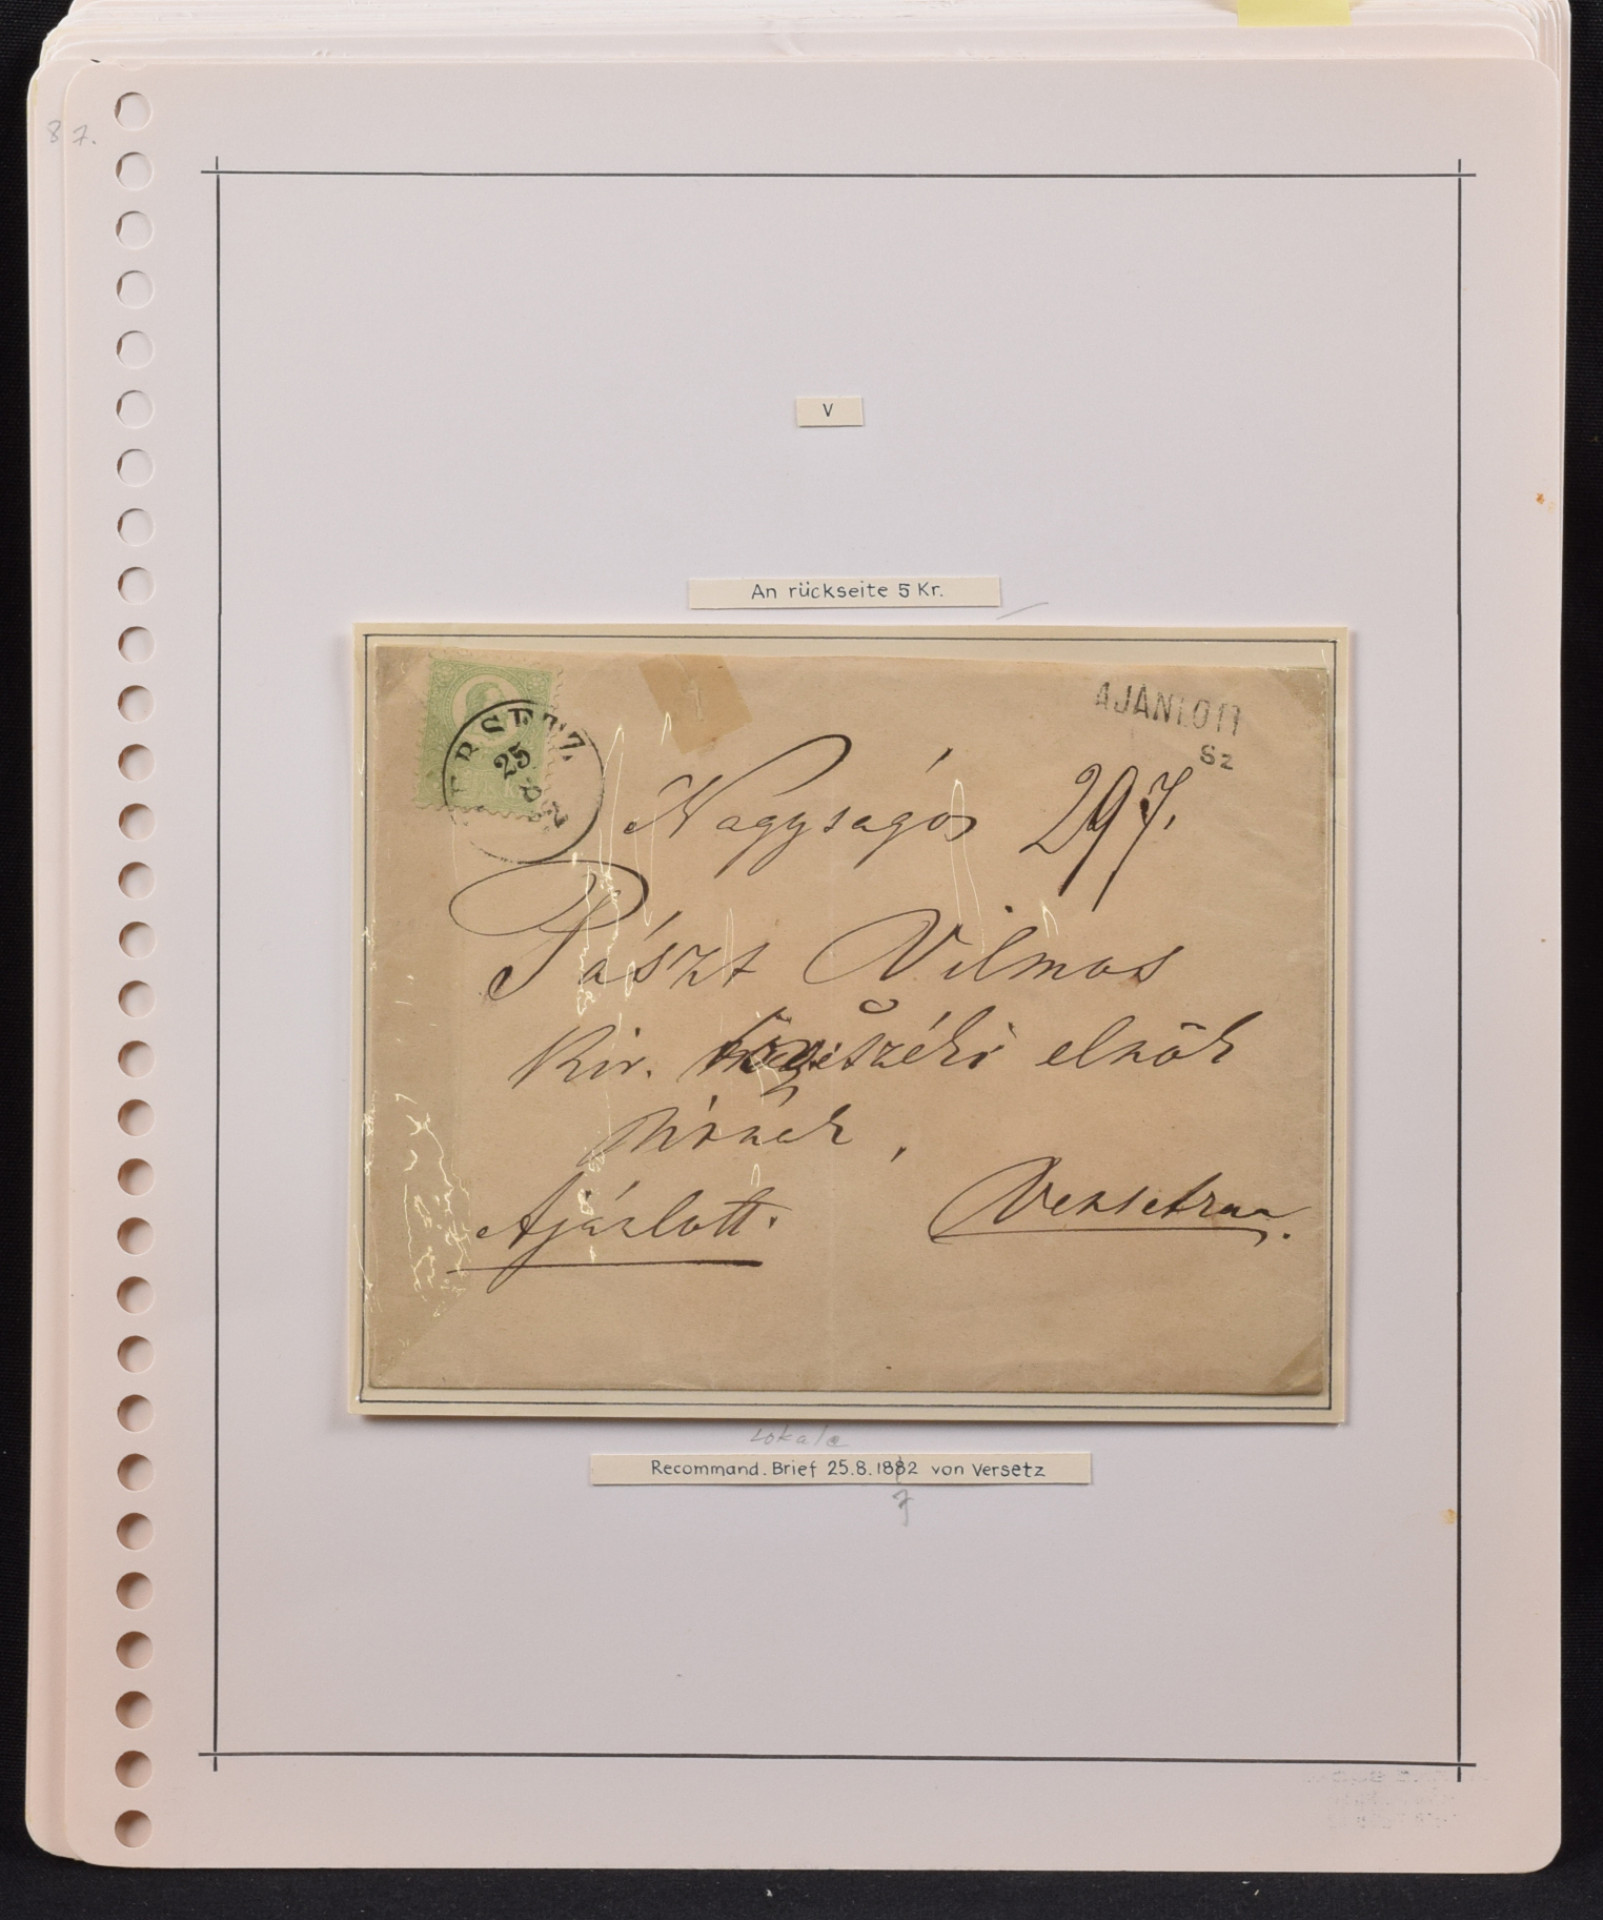 87.
V
An rückseite 5 Kr.
AJÁNLOTT
Sz
ERSETZ
25
8
Nagyságos 297.
Pászt Vilmos
Kir. törvényszéki elnök
úrnak,
Ajánlott. Versetzen.
Lokale
Recommand. Brief 25.8.1882 von Versetz
7